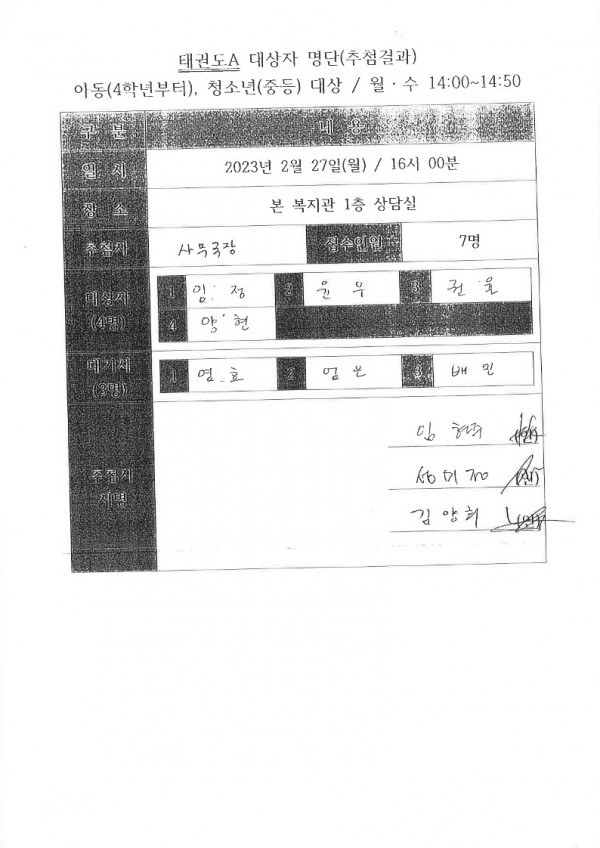 태권도A 대상자 명단(추첨결과)
아동(4학년부터), 청소년(중등) 대상 / 월·수 14:00~14:50
구 분 내 용
일 시 2023년 2월 27일(월) / 16시 00분
장 소 본 복지관 1층 상담실
추첨자 사무국장 접수인원 7명
대상자 1 임 정 2 윤 우 3 권 율
(4명) 4 양 현
대기자 1 염 효 2 엄 은 3 배 민
(3명)
임 현주
추첨자
서명
김 양희